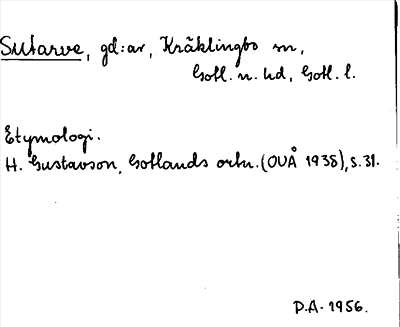 Sutarve, gd:ar, Kräklingbo sn,
Gotl. n. hd, Gotl. l.
Etymologi.
H. Gustavson, Gotlands ortn. (OUÅ 1938), s. 31.
P.A. 1956.